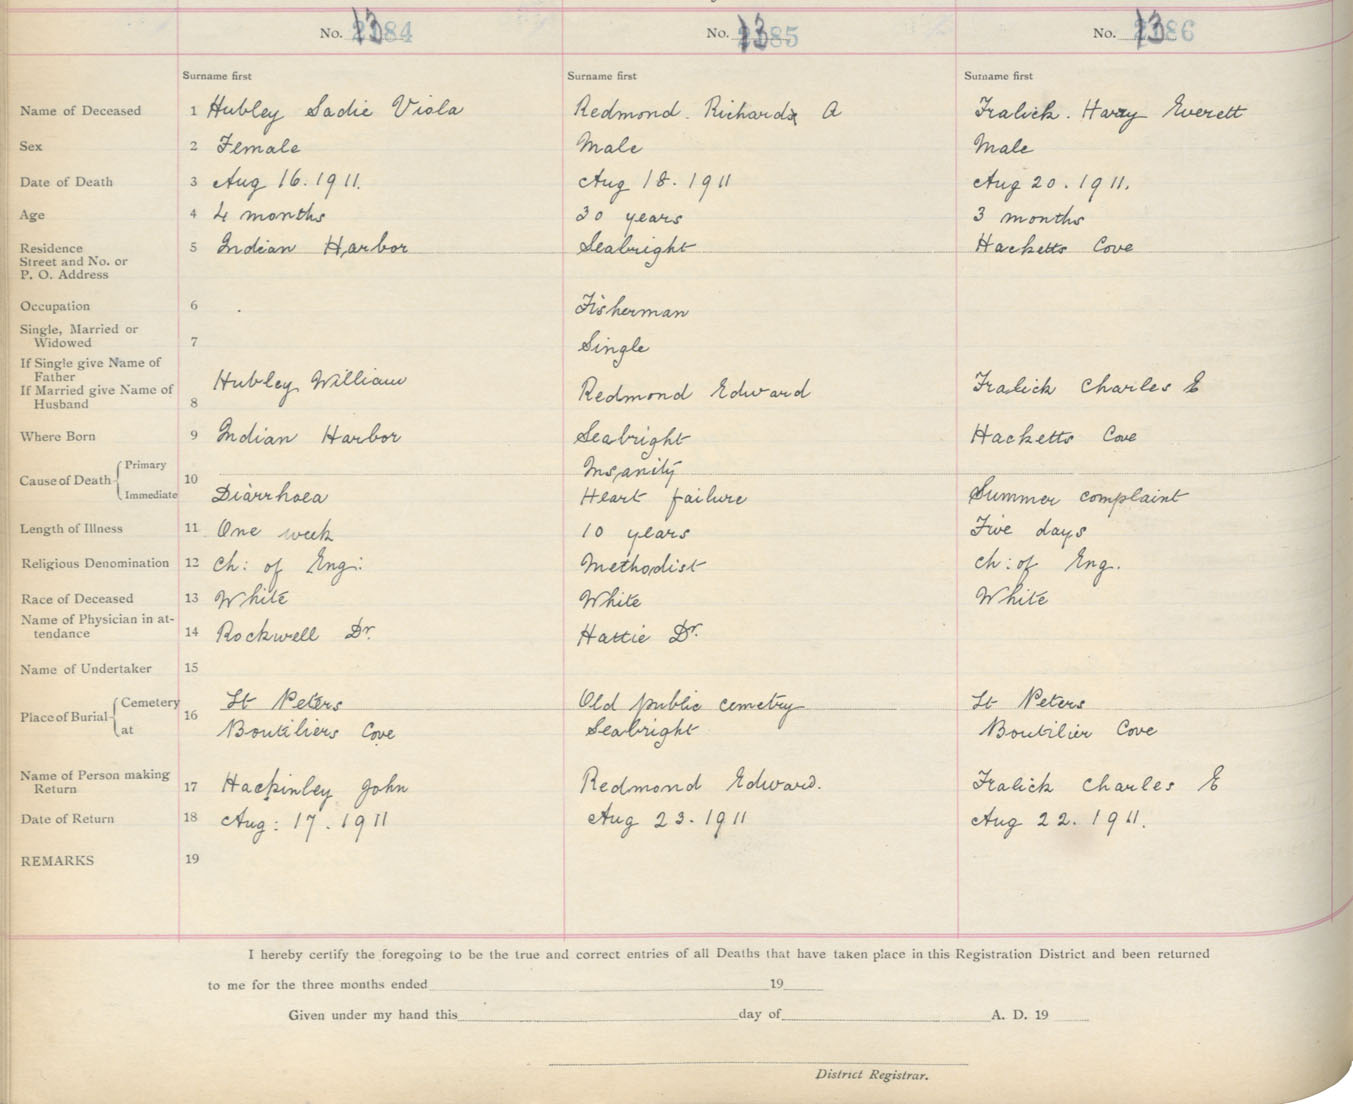 No. 1384 No. 1385 No. 1386
Surname first Surname first Surname first
Name of Deceased 1 Hubley Sadie Viola Redmond. Richard A Fralick. Harry Everett
Sex 2 Female Male Male
Date of Death 3 Aug 16. 1911. Aug 18. 1911 Aug 20. 1911.
Age 4 4 months 30 years 3 months
Residence 5 Indian Harbor Seabright Hacketts Cove
Street and No. or
P. O. Address
Occupation 6 Fisherman
Single, Married or
Widowed 7 Single
If Single give Name of
Father
If Married give Name of
Husband 8 Hubley William Redmond Edward Fralick Charles E
Where Born 9 Indian Harbor Seabright Hacketts Cove
Cause of Death Primary 10 Insanity
Immediate Diarrhoea Heart failure Summer complaint
Length of Illness 11 One week 10 years Five days
Religious Denomination 12 Ch: of Eng: Methodist Ch: of Eng.
Race of Deceased 13 White White White
Name of Physician in at-
tendance 14 Rockwell Dr. Hattie Dr.
Name of Undertaker 15
Place of Burial Cemetery 16 St Peters Old public cemetry St Peters
at Boutiliers Cove Seabright Boutilier Cove
Name of Person making
Return 17 Hackinley John Redmond Edward. Fralick Charles E
Date of Return 18 Aug: 17. 1911 Aug 23. 1911 Aug 22. 1911.
REMARKS 19
I hereby certify the foregoing to be the true and correct entries of all Deaths that have taken place in this Registration District and been returned
to me for the three months ended 19
Given under my hand this day of A. D. 19
District Registrar.